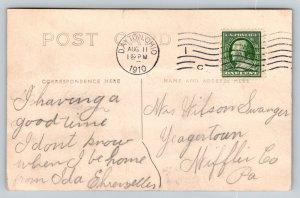 POST CARD
DAYTON, OHIO
AUG 11
12 PM
1910
1
C
ONE CENT
CORRESPONDENCE HERE
NAME AND ADDRESS HERE
I having a
good time
I dont know
when I be home
from Ida
Mrs Wilson Swanger
Yeagertown
Mifflin Co
Pa